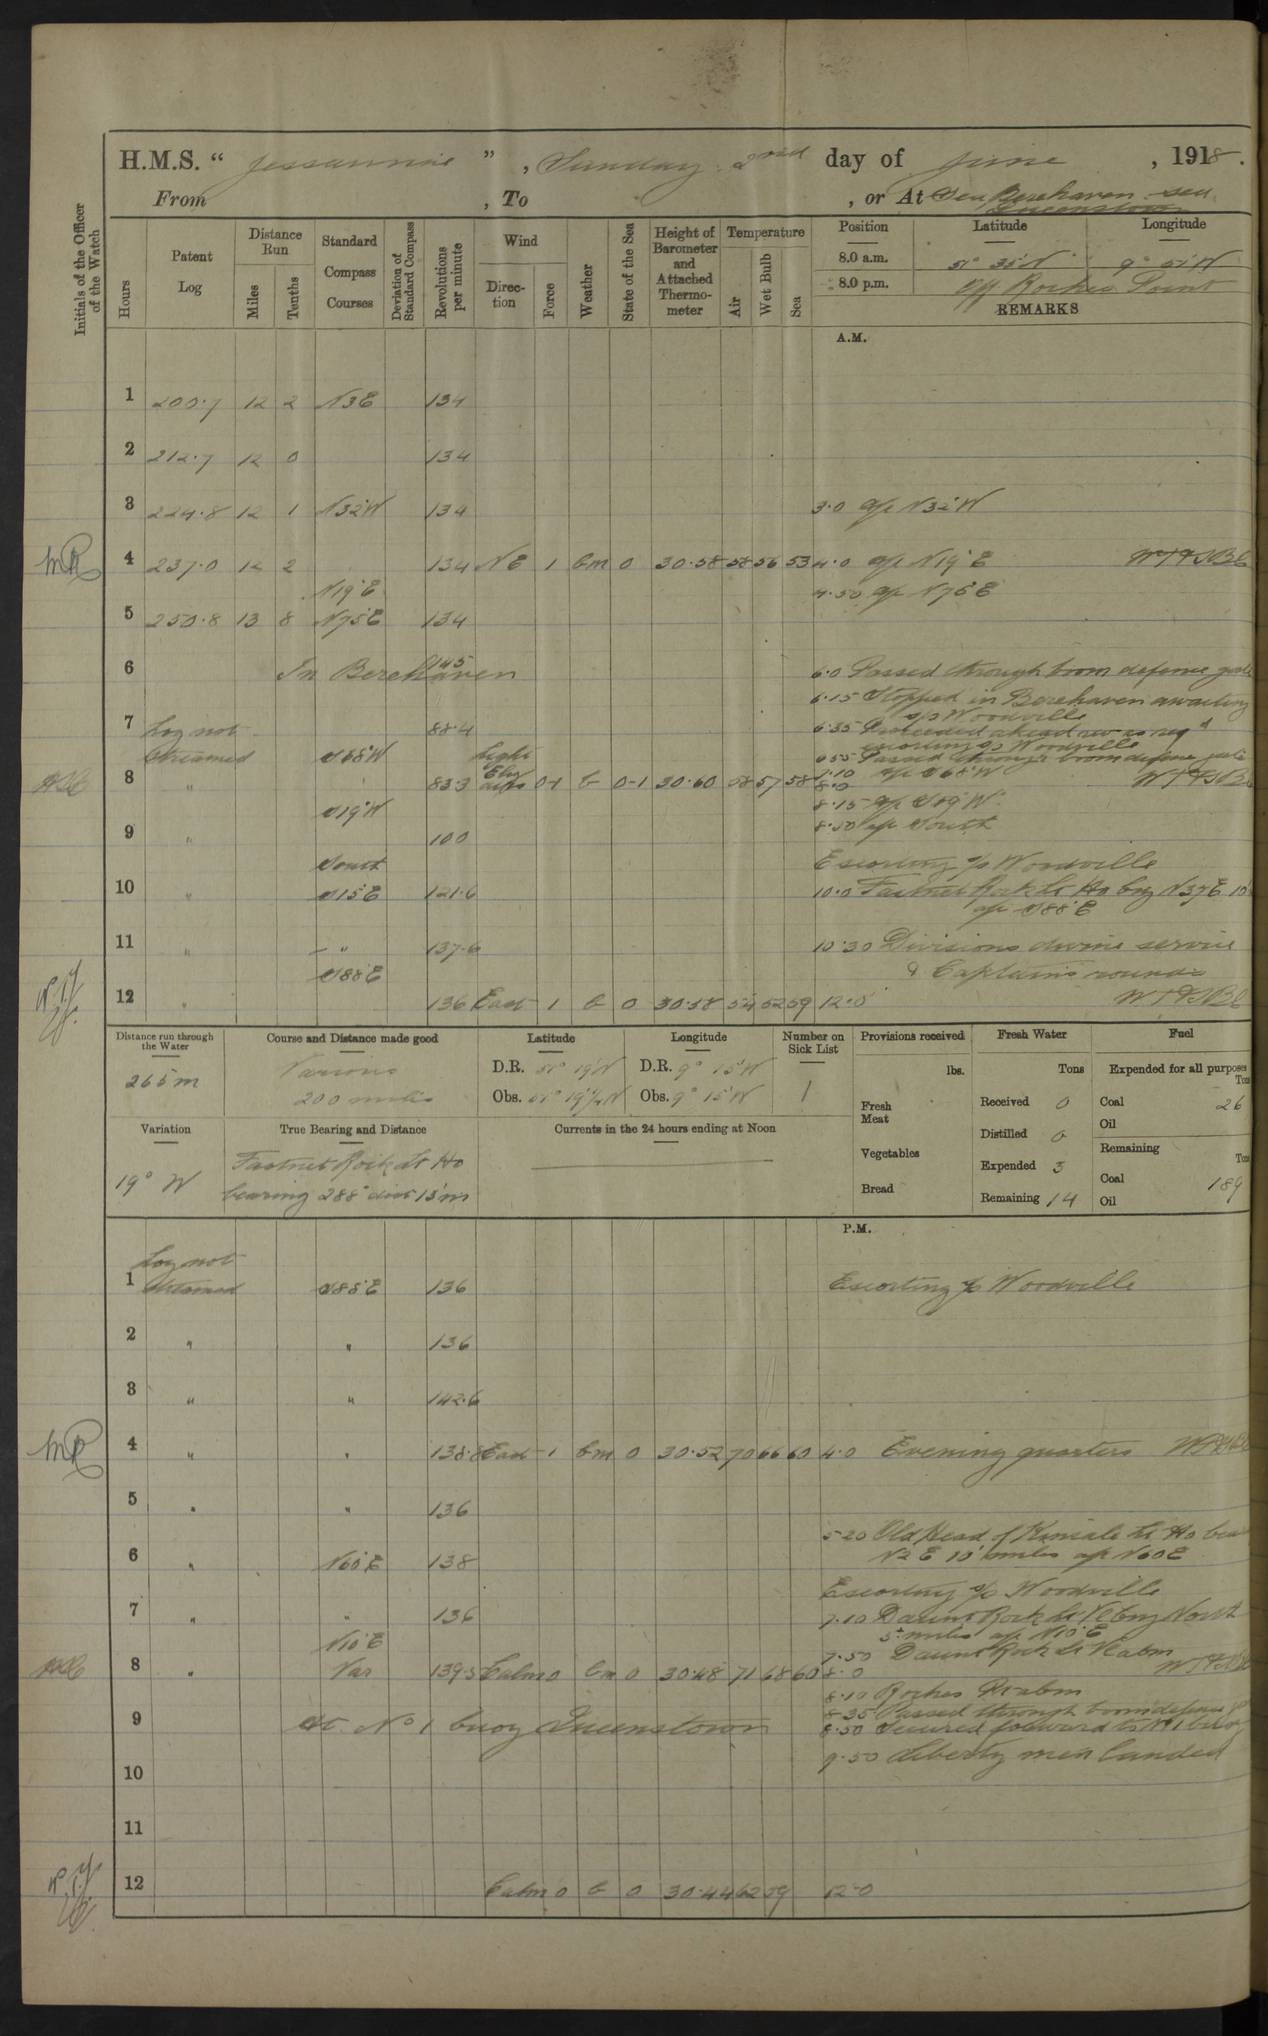 H.M.S. “ Jessamine ” , Sunday 2nd day of June , 1918 .
From , To , or At Sea Berehaven sea
Queenstown
Initials of the Officer of the Watch
Hours
Patent Log
Distance Run
Miles
Tenths
Standard Compass Courses
Deviation of Standard Compass
Revolutions per minute
Wind
Direction
Force
Weather
State of the Sea
Height of Barometer and Attached Thermometer
Temperature
Air
Wet Bulb
Sea
Position Latitude Longitude
8.0 a.m. 51° 35' N 9° 51' W
8.0 p.m. Off Roches Point
REMARKS
A.M.
1 200.7 12 2 N3E 134
2 212.7 12 0 134
3 224.8 12 1 N32W 134 3.0 a/c N32°W
4 237.0 12 2 134 NE 1 bm 0 30.58 58 56 53 4.0 a/c N19°E
N19°E 4.50 a/c N75E
5 250.8 13 8 N75E 134
6 In Berehaven 145 6.0 Passed through boom defence gate
6.15 Stopped in Berehaven awaiting
s/s Woodville
7 Log not 88.4 6.35 Proceeded ahead rev as reqd
escorting s/s Woodville
streamed S68°W Light 6.55 Passed through boom defence gate
7.10 a/c S68°W
8 " 83.3 Ely airs 0-1 b 0-1 30.60 58 57 58 8.0
S19°W 8.15 a/c S19°W
8.50 a/c South
9 " 100
South Escorting s/s Woodville
10 " S15°E 121.6 10.0 Fastnet Rock Lt Ho brg N37E 10'
a/c S88°E
11 " " 137.6 10.30 Divisions divine service
S88E & Captains rounds
12 " 136 East 1 b 0 30.58 54 52 59 12.0
Distance run through the Water
265m
Course and Distance made good
Various
200 miles
Latitude
D.R. 51° 19' N
Obs. 51° 19½' N
Longitude
D.R. 9° 15' W
Obs. 9° 15' W
Number on Sick List
1
Provisions received
lbs.
Fresh Meat
Vegetables
Bread
Fresh Water
Tons
Received 0
Distilled 0
Expended 3
Remaining 14
Fuel
Expended for all purposes
Tons
Coal 26
Oil
Remaining
Tons
Coal 189
Oil
Variation
19° W
True Bearing and Distance
Fastnet Rock Lt Ho
bearing 288° dist 15'm
Currents in the 24 hours ending at Noon
P.M.
Log not
1 streamed S88°E 136 Escorting s/s Woodville
2 " " 136
3 " " 142.6
4 " " 138.8 East 1 bm 0 30.52 70 66 60 4.0 Evening quarters
5 " " 136
5.20 Old Head of Kinsale Lt Ho
6 " N60°E 138 N2E 10' miles a/c N60E
Escorting s/s Woodville
7 " " 136 7.10 Daunt Rock Lt Vl brg North
N10°E miles a/c N10°E
7.50 Daunt Rock Lt Vl abm
8 " Var 139.5 Calm 0 bm 0 30.48 71 68 60 8.0
8.10 Roches Pt abm
8.35 Passed through boom defence
9 At No 1 buoy Queenstown 8.50 Secured forward to No 1 buoy
9.50 Liberty men landed
10
11
12 Calm 0 b 0 30.44 62 59 12.0